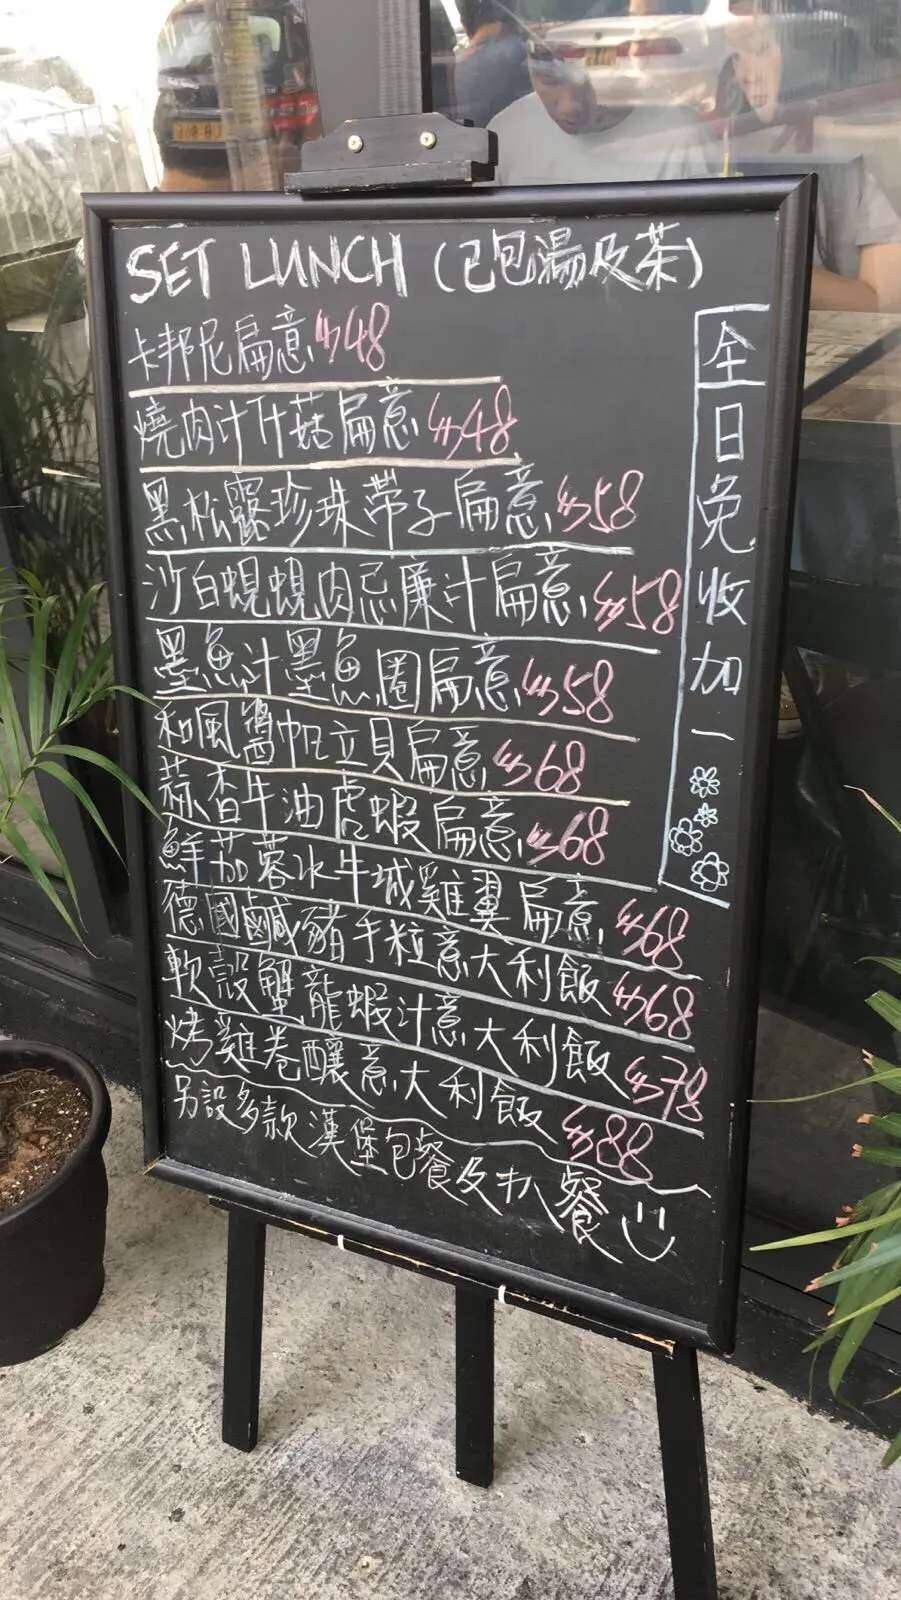 SET LUNCH (已包湯及茶)
卡邦尼扁意 $48
燒肉汁什菇扁意 $48
黑松露珍珠帶子扁意 $58
沙白蜆蜆肉忌廉汁扁意 $58
墨魚汁墨魚圈扁意 $58
和風醬帆立貝扁意 $68
蒜香牛油虎蝦扁意 $68
鮮茄蓉水牛城雞翼扁意 $68
德國鹹豬手粒意大利飯 $68
軟殼蟹龍蝦汁意大利飯 $78
烤雞卷釀意大利飯 $88
另設多款漢堡包餐及扒餐
全日免收加一